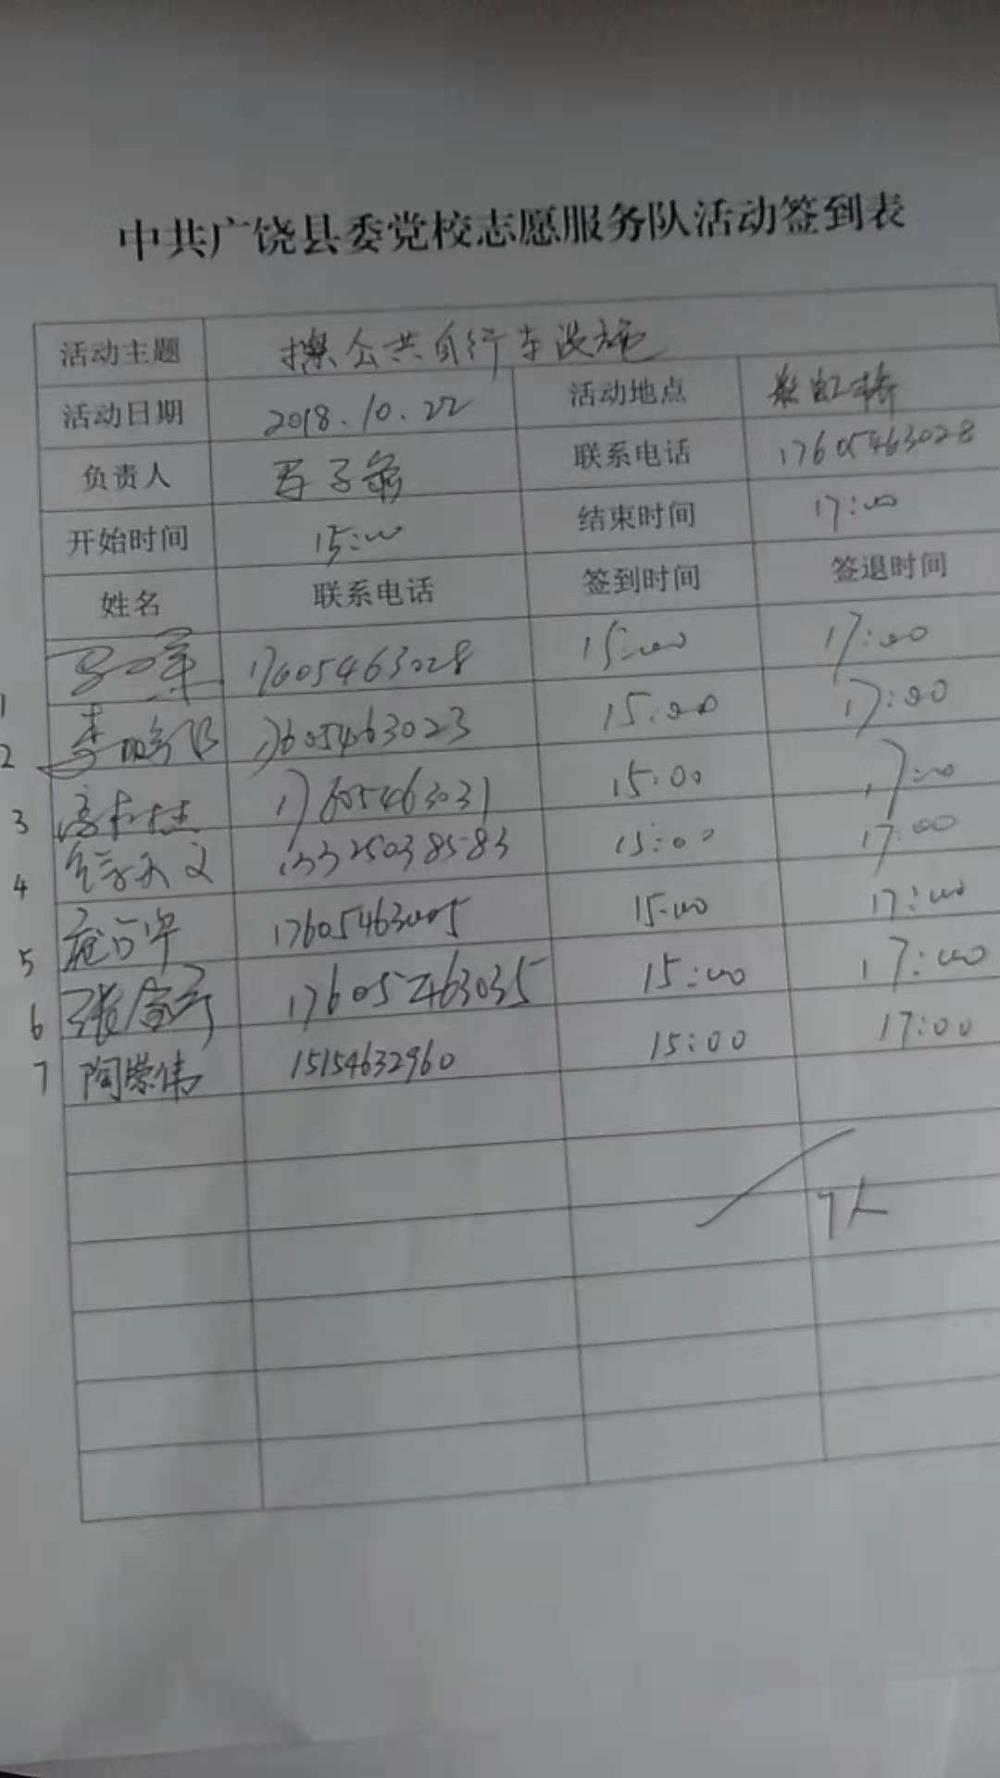 中共广饶县委党校志愿服务队活动签到表
活动主题 擦公共自行车设施
活动日期 2018.10.22 活动地点 彩虹桥
负责人 联系电话 17605463028
开始时间 15:00 结束时间 17:00
姓名 联系电话 签到时间 签退时间
1 17605463028 15:00 17:00
2 李 17605463023 15:00 17:00
3 17605463031 15:00 17:00
4 13325038583 15:00 17:00
5 17605463005 15:00 17:00
6 张 17605463035 15:00 17:00
7 陶荣伟 15154632960 15:00 17:00
7人